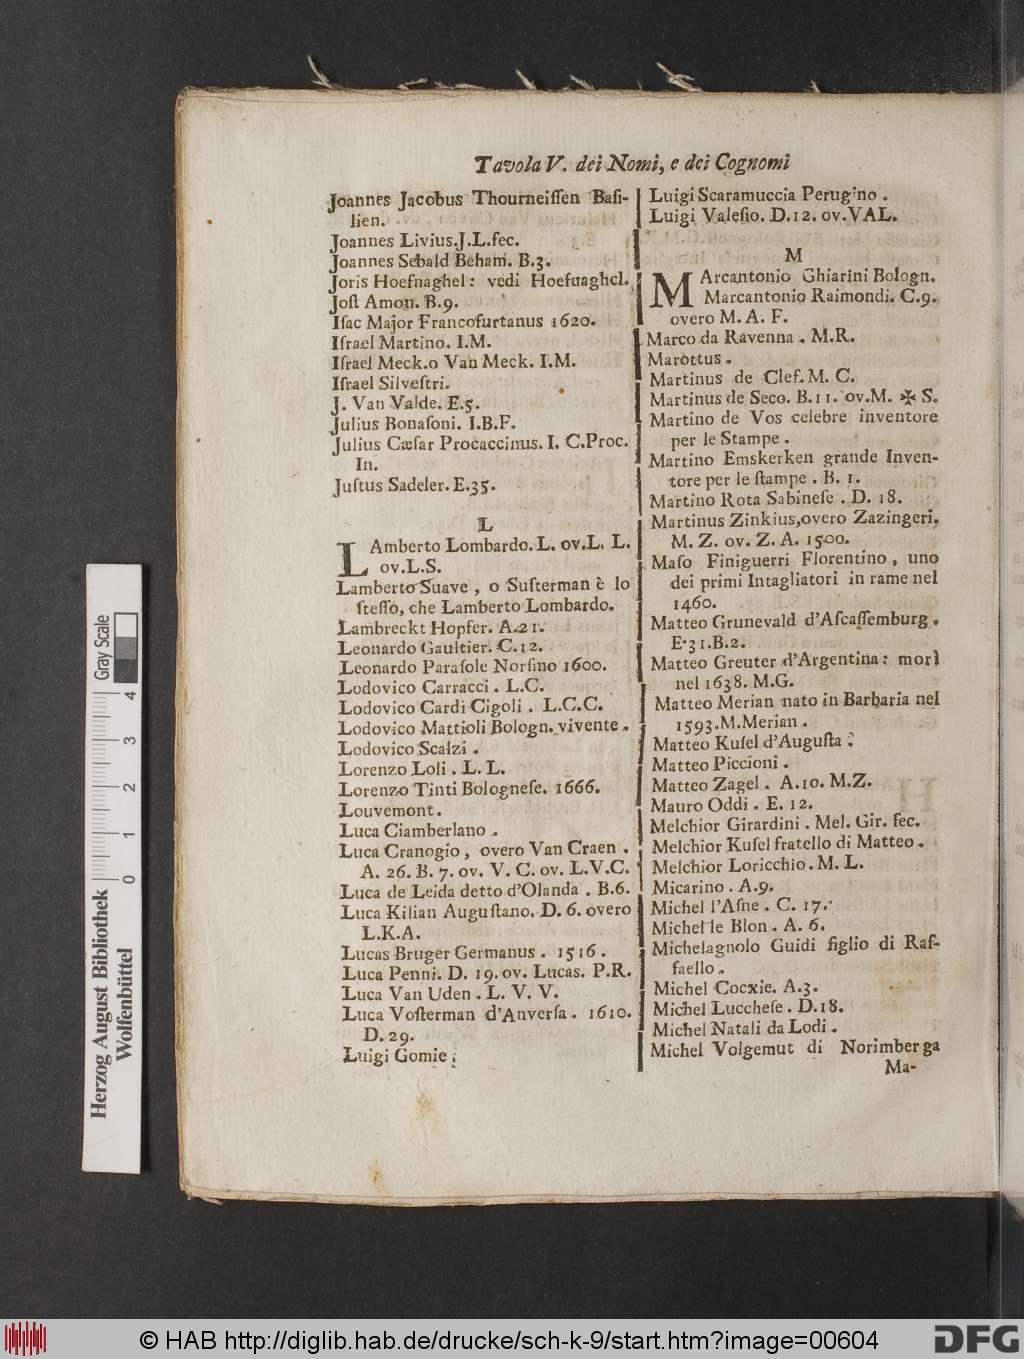 Tavola V. dei Nomi, e dei Cognomi
Joannes Jacobus Thourneiſſen Baſi-
lien.
Joannes Livius.J.L.fec.
Joannes Sebald Beham. B.3.
Joris Hoefnaghel: vedi Hoefnaghel.
Joſt Amon. B.9.
Iſac Major Francofurtanus 1620.
Iſrael Martino. I.M.
Iſrael Meck.o Van Meck. I.M.
Iſrael Silveſtri.
J. Van Valde. E.5.
Julius Bonaſoni. I.B.F.
Julius Cæſar Procaccinus. I. C.Proc.
In.
Juſtus Sadeler. E.35.
L
LAmberto Lombardo. L. ov.L. L.
ov.L.S.
Lamberto Suave, o Suſterman è lo
ſteſſo, che Lamberto Lombardo.
Lambreckt Hopfer. A.21.
Leonardo Gaultier. C.12.
Leonardo Paraſole Norſino 1600.
Lodovico Carracci. L.C.
Lodovico Cardi Cigoli. L.C.C.
Lodovico Mattioli Bologn. vivente.
Lodovico Scalzi.
Lorenzo Loli. L. L.
Lorenzo Tinti Bologneſe. 1666.
Louvemont.
Luca Ciamberlano.
Luca Cranogio, overo Van Craen.
A. 26. B. 7. ov. V. C. ov. L.V.C.
Luca de Leida detto d'Olanda. B.6.
Luca Kilian Auguſtano. D. 6. overo
L.K.A.
Lucas Bruger Germanus. 1516.
Luca Penni. D. 19. ov. Lucas. P.R.
Luca Van Uden. L. V. V.
Luca Voſterman d'Anverſa. 1610.
D. 29.
Luigi Gomie.
Luigi Scaramuccia Perugino.
Luigi Valeſio. D.12. ov.VAL.
M
MArcantonio Ghiarini Bologn.
Marcantonio Raimondi. C.9.
overo M. A. F.
Marco da Ravenna. M.R.
Marottus.
Martinus de Cleſ. M. C.
Martinus de Seco. B.11. ov.M. ✠ S.
Martino de Vos celebre inventore
per le Stampe.
Martino Emskerken grande Inven-
tore per le ſtampe. B. 1.
Martino Rota Sabineſe. D. 18.
Martinus Zinkius,overo Zazingeri.
M. Z. ov. Z. A. 1500.
Maſo Finiguerri Florentino, uno
dei primi Intagliatori in rame nel
1460.
Matteo Grunevald d'Aſcaſſemburg.
E.31.B.2.
Matteo Greuter d'Argentina: morì
nel 1638. M.G.
Matteo Merian nato in Barbaria nel
1593.M.Merian.
Matteo Kuſel d'Auguſta.
Matteo Piccioni.
Matteo Zagel. A.10. M.Z.
Mauro Oddi. E. 12.
Melchior Girardini. Mel. Gir. fec.
Melchior Kuſel fratello di Matteo.
Melchior Loricchio. M. L.
Micarino. A.9.
Michel l'Aſne. C. 17.
Michel le Blon. A. 6.
Michelagnolo Guidi figlio di Raf-
faello.
Michel Cocxie. A.3.
Michel Luccheſe. D.18.
Michel Natali da Lodi.
Michel Volgemut di Norimberga
Ma-
Gray Scale
0 1 2 3 4
Herzog August Bibliothek
Wolfenbüttel
© HAB http://diglib.hab.de/drucke/sch-k-9/start.htm?image=00604
DFG